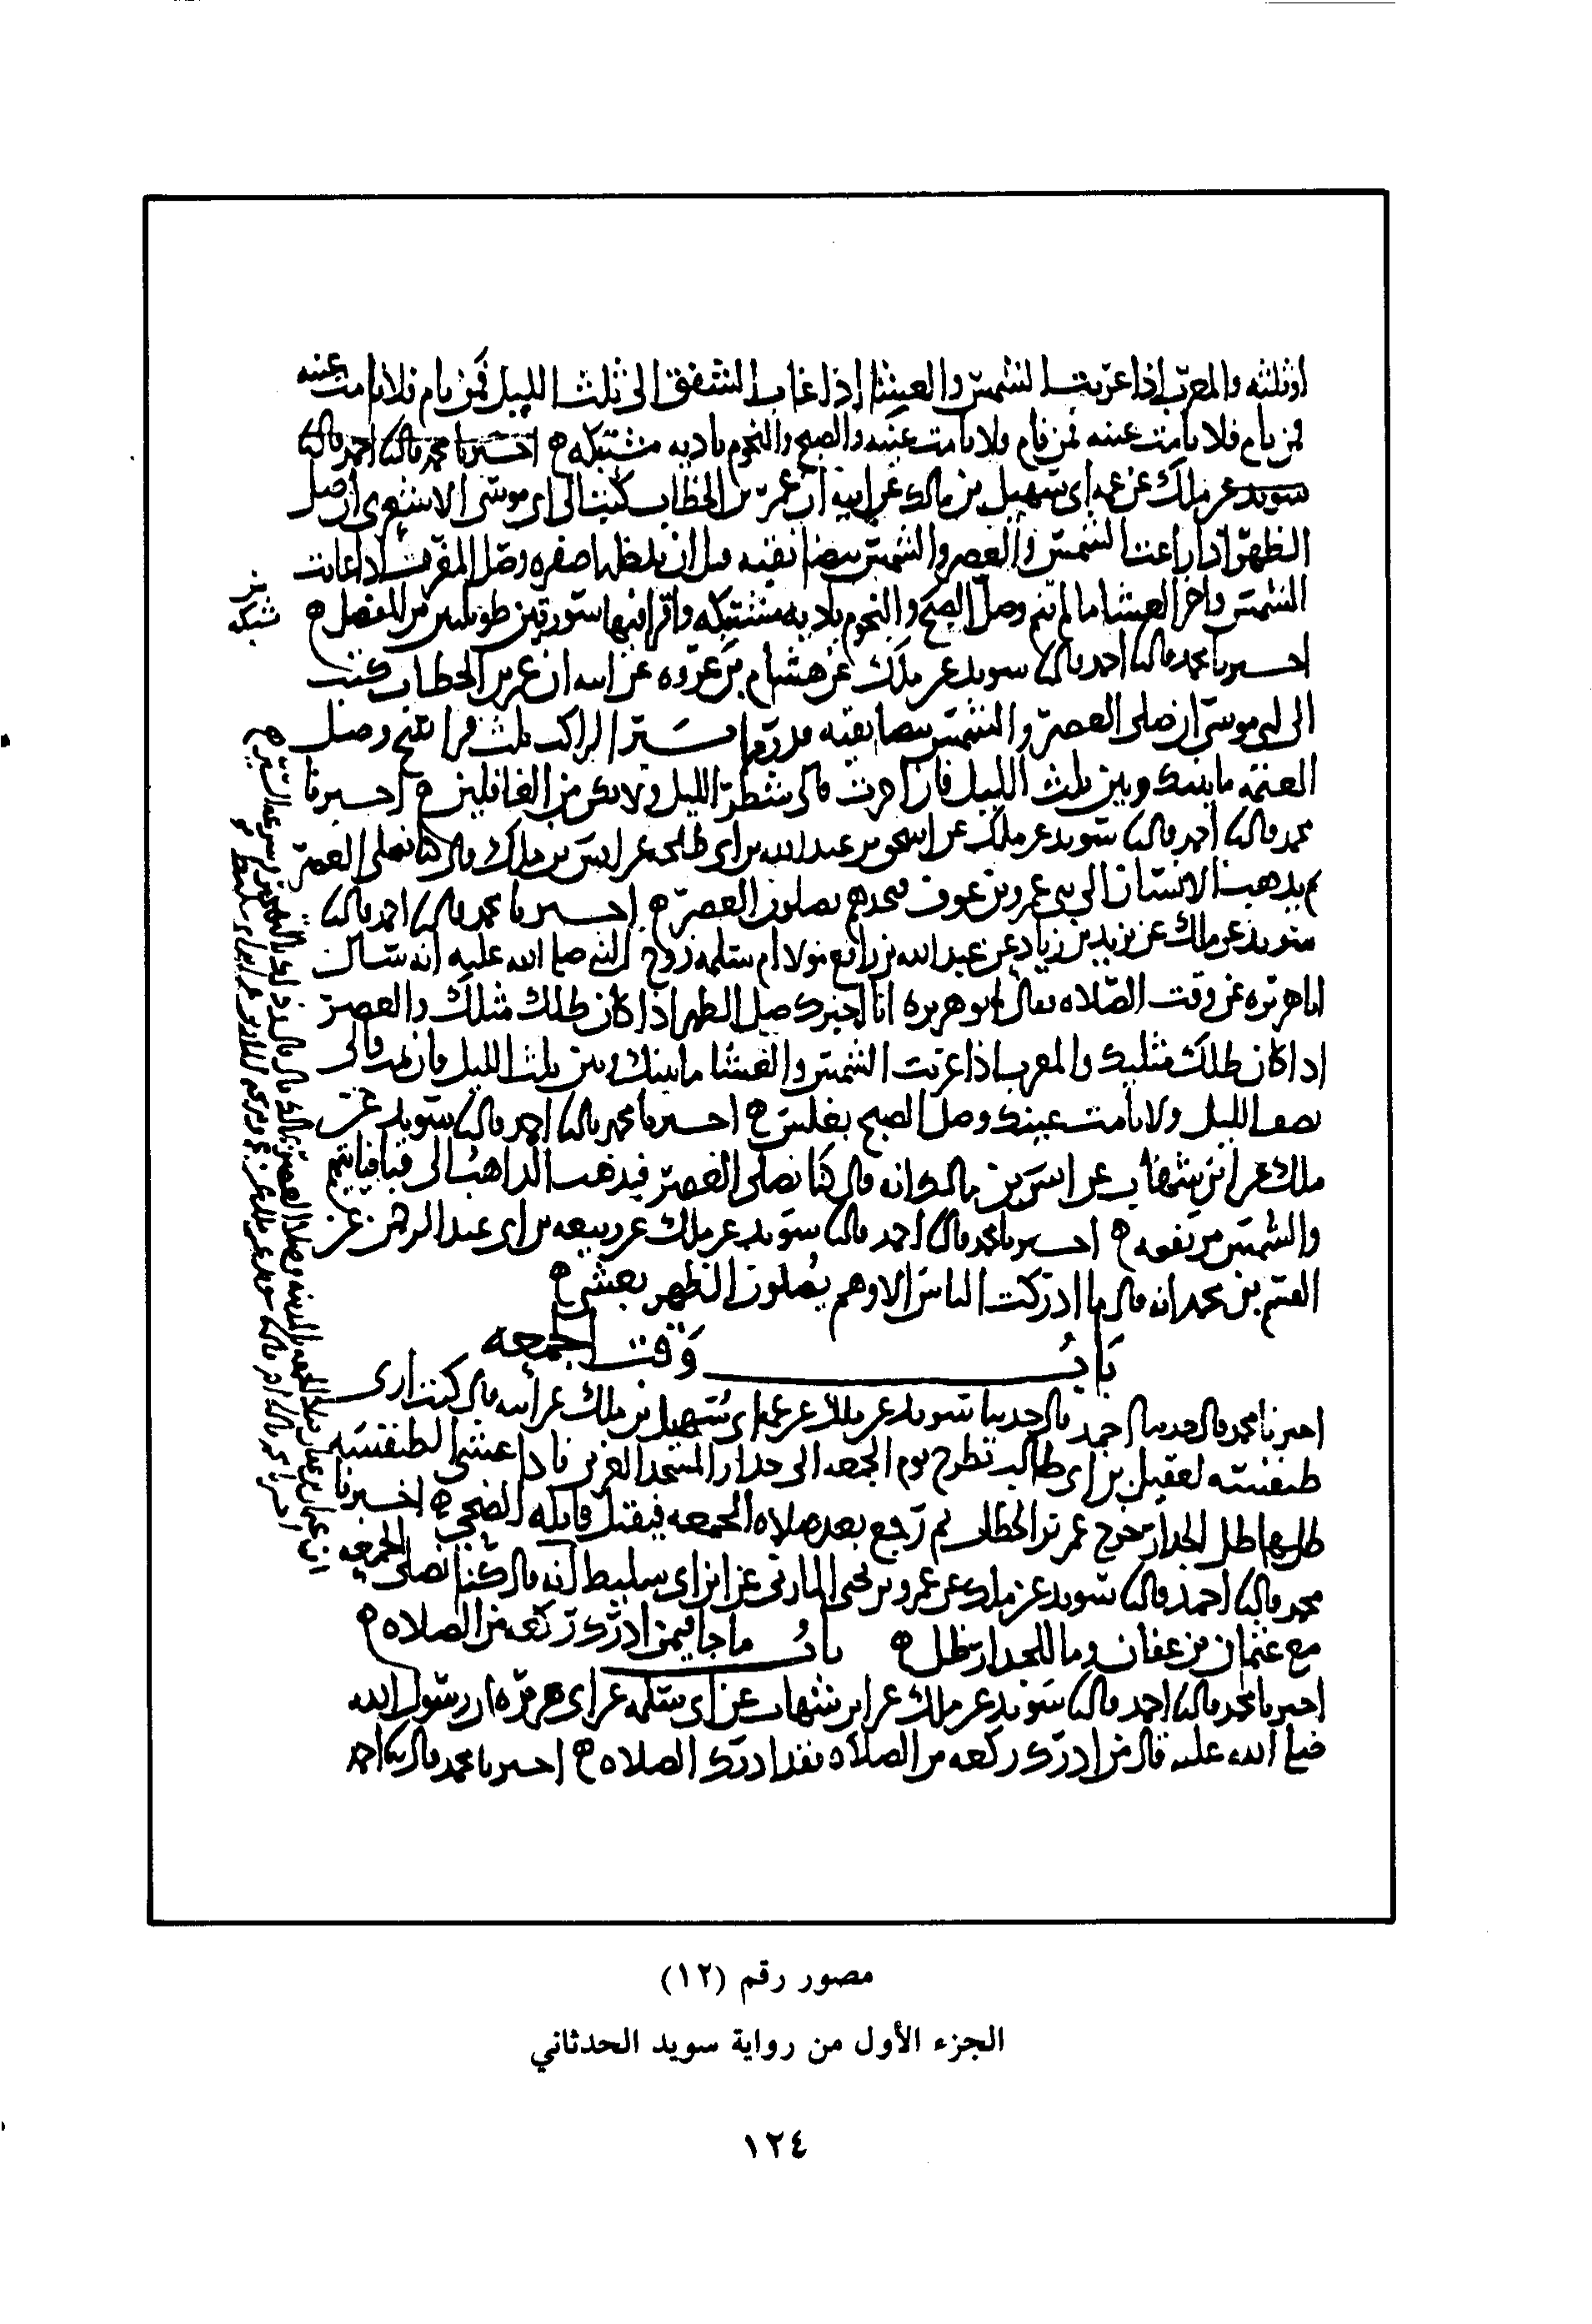 او ثلثه والمغرب اذا غربت الشمس والعشا اذا غاب الشفق الى ثلث الليل فمن نام فلا نامت عينه
فمن نام فلا نامت عينه فمن نام فلا نامت عينه والصبح والنجوم باديه مشتبكه اخبرنا محمد قال احمد قال
سويد عن ملك عن عمه ابي سهيل بن مالك عن ابيه ان عمر بن الخطاب كتب الى ابي موسى الاشعري ان صل
الظهر اذا زاغت الشمس والعصر والشمس بيضا نقيه قبل ان يدخلها صفره وصل المغرب اذا غابت
الشمس واخر العشا ما لم تنم وصل الصبح والنجوم باديه مشتبكه واقرا فيها سورتين طويلتين من المفصل
اخبرنا محمد قال احمد قال سويد عن ملك عن هشام بن عروه عن ابيه ان عمر بن الخطاب كتب
الى ابي موسى ان صلى العصر والشمس بيضا نقيه قدر ما يسير الراكب ثلث فراسخ وصل
العتمه ما بينك وبين ثلث الليل فان اخرت فالى شطر الليل ولا تكن من الغافلين اخبرنا
محمد قال احمد قال سويد عن ملك عن اسحق بن عبد الله بن ابي طلحه عن انس بن ملك قال كنا نصلى العصر
ثم يذهب الانسان الى بني عمرو بن عوف فيجدهم يصلون العصر اخبرنا محمد قال احمد قال
سويد عن ملك عن يزيد بن زياد عن عبد الله بن رافع مولا ام سلمه زوج النبي صلى الله عليه انه سال
ابا هريره عن وقت الصلاه فقال ابو هريره انا اخبرك صل الظهر اذا كان ظلك مثلك والعصر
اذا كان ظلك مثليك والمغرب اذا غربت الشمس والعشا ما بينك وبين ثلث الليل فان نمت فالى
نصف الليل ولا نامت عينك وصل الصبح بغلس اخبرنا محمد قال احمد قال سويد عن
ملك عن ابن شهاب عن انس بن مالك انه قال كنا نصلى العصر فيذهب الذاهب الى قبا فياتيهم
والشمس مرتفعه اخبرنا محمد قال احمد قال سويد عن ملك عن ربيعه بن ابي عبد الرحمن عن
القسم بن محمد انه قال ما ادركت الناس الا وهم يصلون الظهر بعشي
باب وقت الجمعه
اخبرنا محمد قال حدثنا احمد قال حدثنا سويد عن ملك عن عمه ابي سهيل بن ملك عن ابيه قال كنت ارى
طنفسه لعقيل بن ابي طالب تطرح يوم الجمعه الى جدار المسجد الغربي فاذا غشى الطنفسه
كلها ظل الجدار خرج عمر بن الخطاب ثم نرجع بعد صلاه الجمعه فنقيل قايله الضحى اخبرنا
محمد قال احمد قال سويد عن ملك عن عمرو بن يحيى المازني عن ابن ابي سليط انه قال كنا نصلى الجمعه
مع عثمان بن عفان وما للجدار ظل باب ما جا فيمن ادرك ركعه من الصلاه
اخبرنا محمد قال احمد قال سويد عن ملك عن ابن شهاب عن ابي سلمه عن ابي هريره ان رسول الله
صلى الله عليه قال من ادرك ركعه من الصلاه فقد ادرك الصلاه اخبرنا محمد قال احمد
مشتبكه
مصور رقم (١٢)
الجزء الأول من رواية سويد الحدثاني
١٢٤